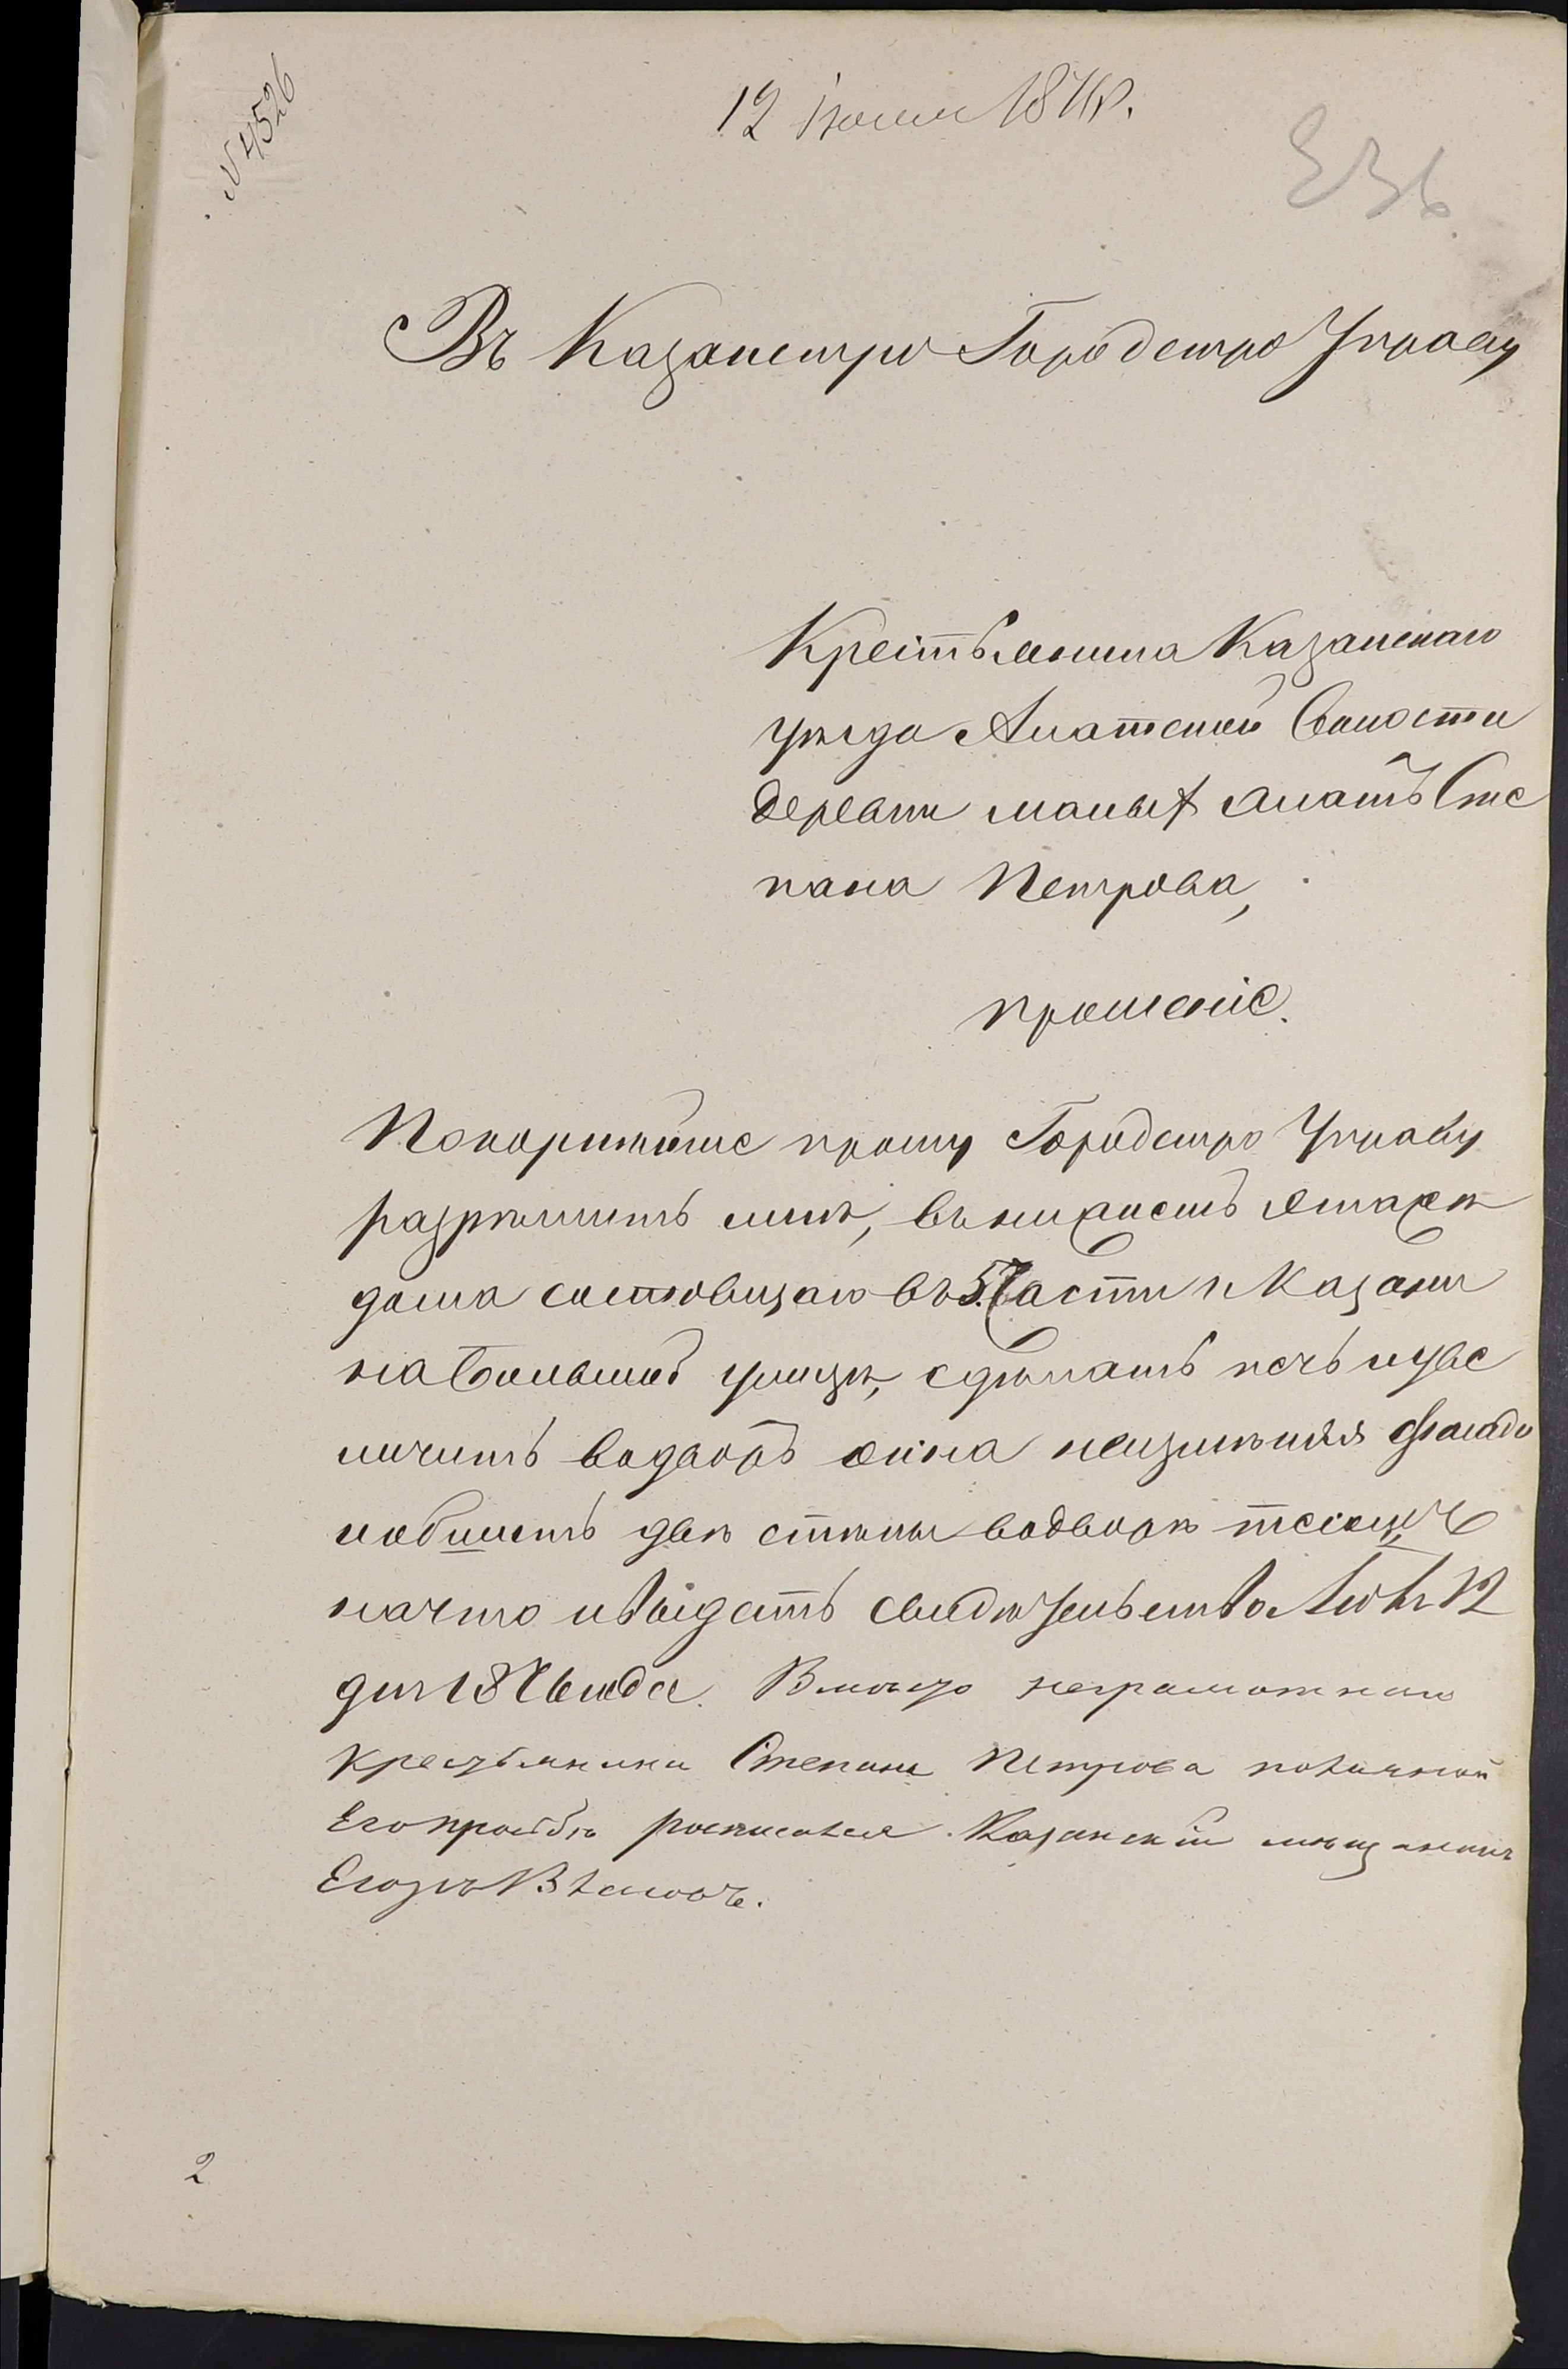 № 4526
12 Іюня 1876 г.
Въ Казанскую Городскую Управу
Крестьянина Казанскаго
уѣзда Алатской Волости
деревни малыхъ Алатъ Сте
пана Петрова,
прошеніе.
Покорнѣйше прошу Городскую Управу
разрѣшить мнѣ, въ нижнемъ этажѣ
дома состоящаго въ 5 Части г. Казани
на Большой улицѣ, сдѣлать печь и уве
личить окна неизмѣняя фасада
и обшить двѣ стѣны во дворѣ тесомъ
на что и выдать свидѣтельство Іюня 12
дня 1876 года. Вмѣсто неграмотнаго
крестьянина Степана Петрова по личной
Его прозьбѣ росписался Казанскій мѣщанинъ
Егоръ
2